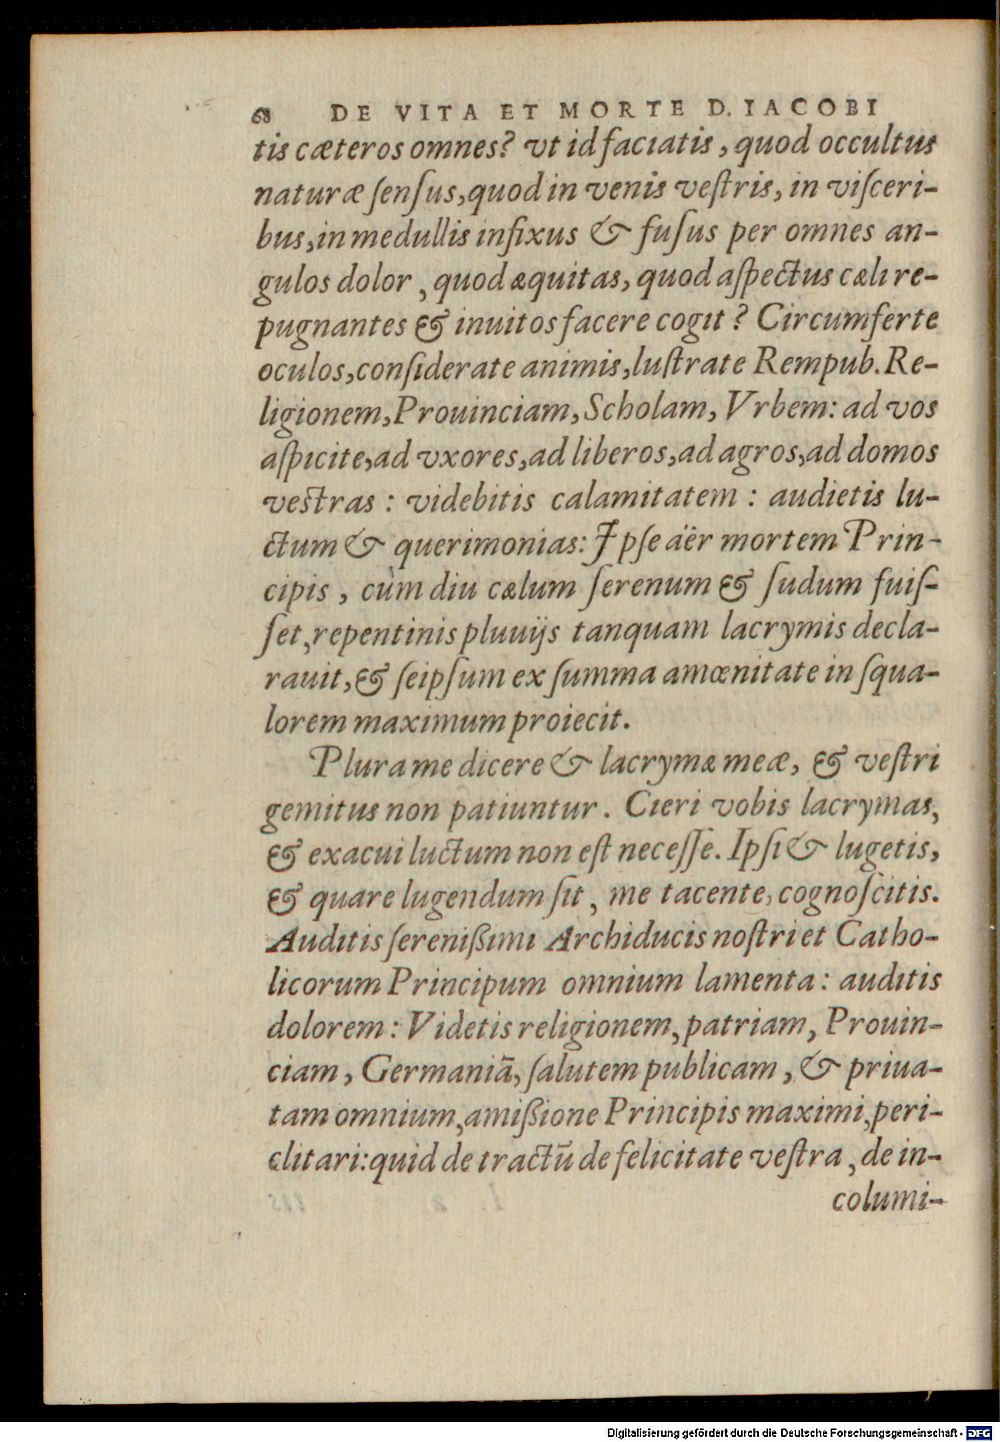 68 DE VITA ET MORTE D. IACOBI
tis cæteros omnes? vt id faciatis, quod occultus
naturæ ſenſus, quod in venis veſtris, in viſceri-
bus, in medullis infixus & fuſus per omnes an-
gulos dolor, quod æquitas, quod aſpectus cæli re-
pugnantes & inuitos facere cogit? Circumferte
oculos, conſiderate animis, luſtrate Rempub. Re-
ligionem, Prouinciam, Scholam, Vrbem: ad vos
aſpicite, ad vxores, ad liberos, ad agros, ad domos
veſtras: videbitis calamitatem: audietis lu-
ctum & querimonias: Ipſe aër mortem Prin-
cipis, cùm diu cælum ſerenum & ſudum fuiſ-
ſet, repentinis pluuijs tanquam lacrymis decla-
rauit, & ſeipſum ex ſumma amœnitate in ſqua-
lorem maximum proiecit.
Plura me dicere & lacrymæ meæ, & veſtri
gemitus non patiuntur. Cieri vobis lacrymas,
& exacui luctum non eſt neceſſe. Ipſi & lugetis,
& quare lugendum ſit, me tacente, cognoſcitis.
Auditis ſerenißimi Archiducis noſtri et Catho-
licorum Principum omnium lamenta: auditis
dolorem: Videtis religionem, patriam, Prouin-
ciam, Germaniā, ſalutem publicam, & priua-
tam omnium, amißione Principis maximi, peri-
clitari: quid de tractū de felicitate veſtra, de in-
columi-
Digitalisierung gefördert durch die Deutsche Forschungsgemeinschaft - DFG